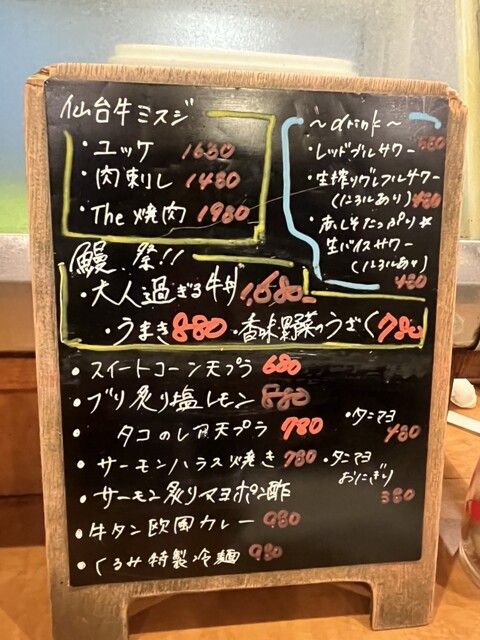 仙台牛ミスジ
・ユッケ 1680
・肉刺し 1480
・The 焼肉 1980
〜drink〜
・レッドブルサワー 680
・生搾りグレフルサワー
(にごりあり) 480
・赤しそたっぷり☆
・生バイスサワー
(にごりあり)
480
鰻 祭!!
・大人過ぎる牛丼 1,680-
・うまき 880 ・香味野菜のうざく 780
・スイートコーン天プラ 680
・ブリ炙り塩レモン 880
・タコのレア天プラ 780
・サーモンハラス焼き 780
・サーモン炙りマヨポン酢
・牛タン欧風カレー 980
・くるみ特製冷麺 980
・タニマヨ
480
・タニマヨ
おにぎり
380